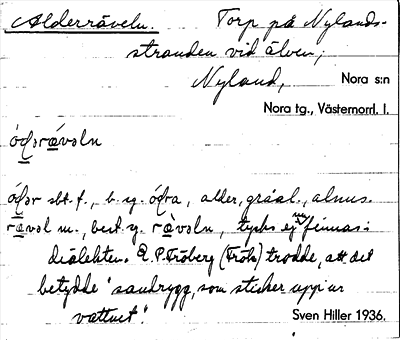 Alderräveln. Torp på Nylands-
stranden vid älven;
Nyland, Nora s:n
Nora tg., Västernorrl. l.
sbt. f., b. y. alder, gråal, alnus.
m., best. y. tycks ej nu finnas i
dialekten. E. P. Fröberg (Fröb) trodde, att det
betydde 'sandrygg, som sticker upp ur
vattnet'.
Sven Hiller 1936.